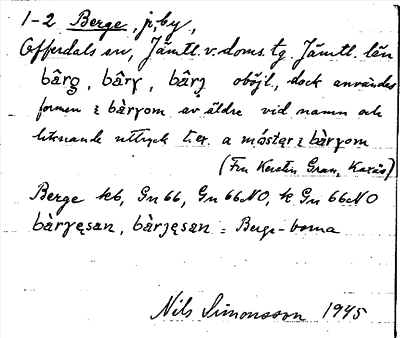 1-2 Berge, j, by,
Offerdals sn, Jämtl. v. doms. tg. Jämtl. län
bârg, bâry, bârj oböjl., dock användes
formen ɛ bàryom av äldre vid namn och
liknande uttryck t.ex. a mόstər ɛ bàryom
(Fru Kerstin Gran, Kaxås)
Berge kb, Gn 66, Gn 66 NO, k Gn 66 NO
bàryęsan, bàrjęsan = Berge-borna
Nils Simonsson 1945